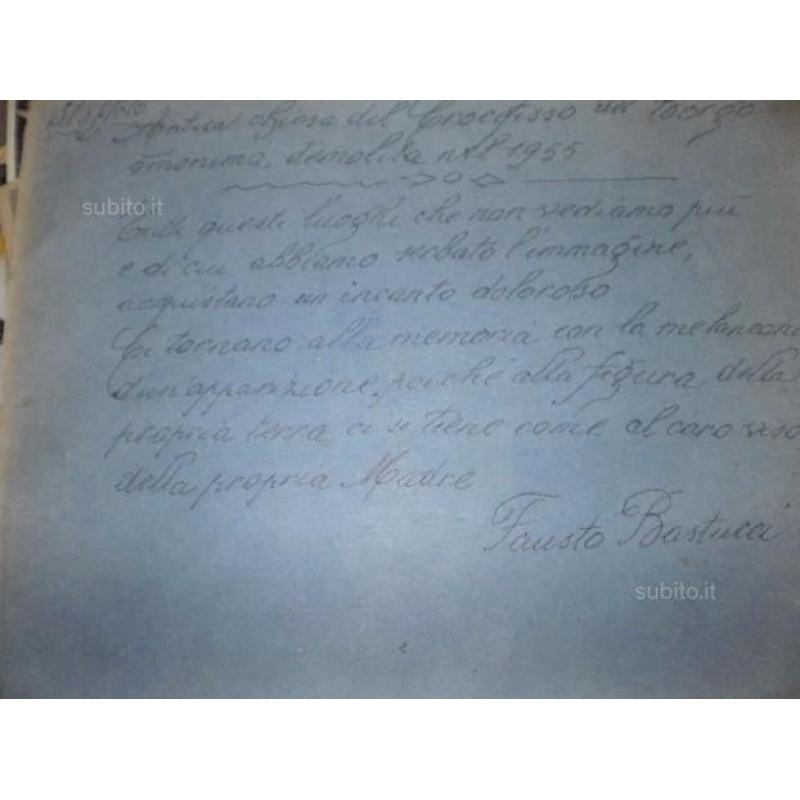 Staffolo
Antica chiesa del Crocefisso nel borgo
omonimo, demolita nel 1955
subito.it
Tutti questi luoghi che non vediamo più
e di cui abbiamo serbato l'immagine,
acquistano un incanto doloroso
Ci tornano alla memoria con la melanconi
d'un'apparizione, poiché alla figura della
propria terra ci si tiene come al caro viso
della propria Madre
Fausto Bastucci
subito.it